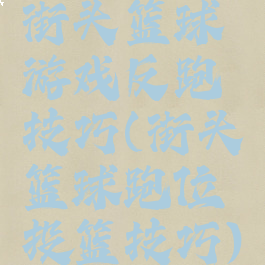 街头篮球
游戏反跑
技巧(街头
篮球跑位
投篮技巧)